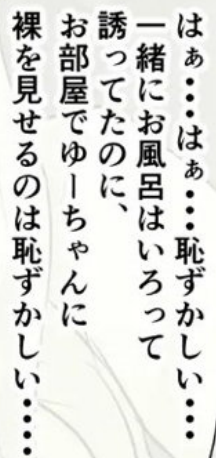 はぁ・・・はぁ・・・恥ずかしい・・・
一緒にお風呂はいろって
誘ってたのに、
お部屋でゆーちゃんに
裸を見せるのは恥ずかしい・・・・・